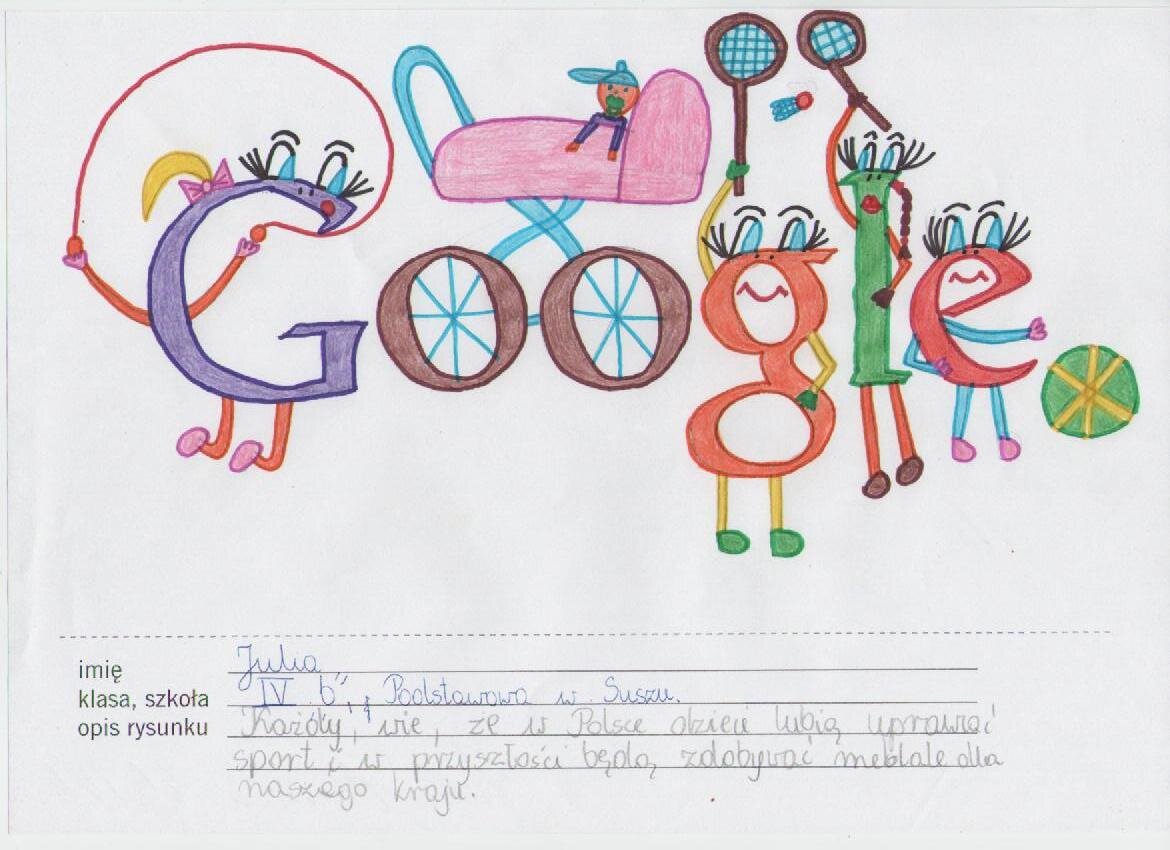 Google
imię Julia
klasa, szkoła IV b", Podstawowa w Suszu.
opis rysunku Każdy, wie, że w Polsce dzieci lubią uprawiać
sport i w przyszłości będą zdobywać medale dla
naszego kraju.